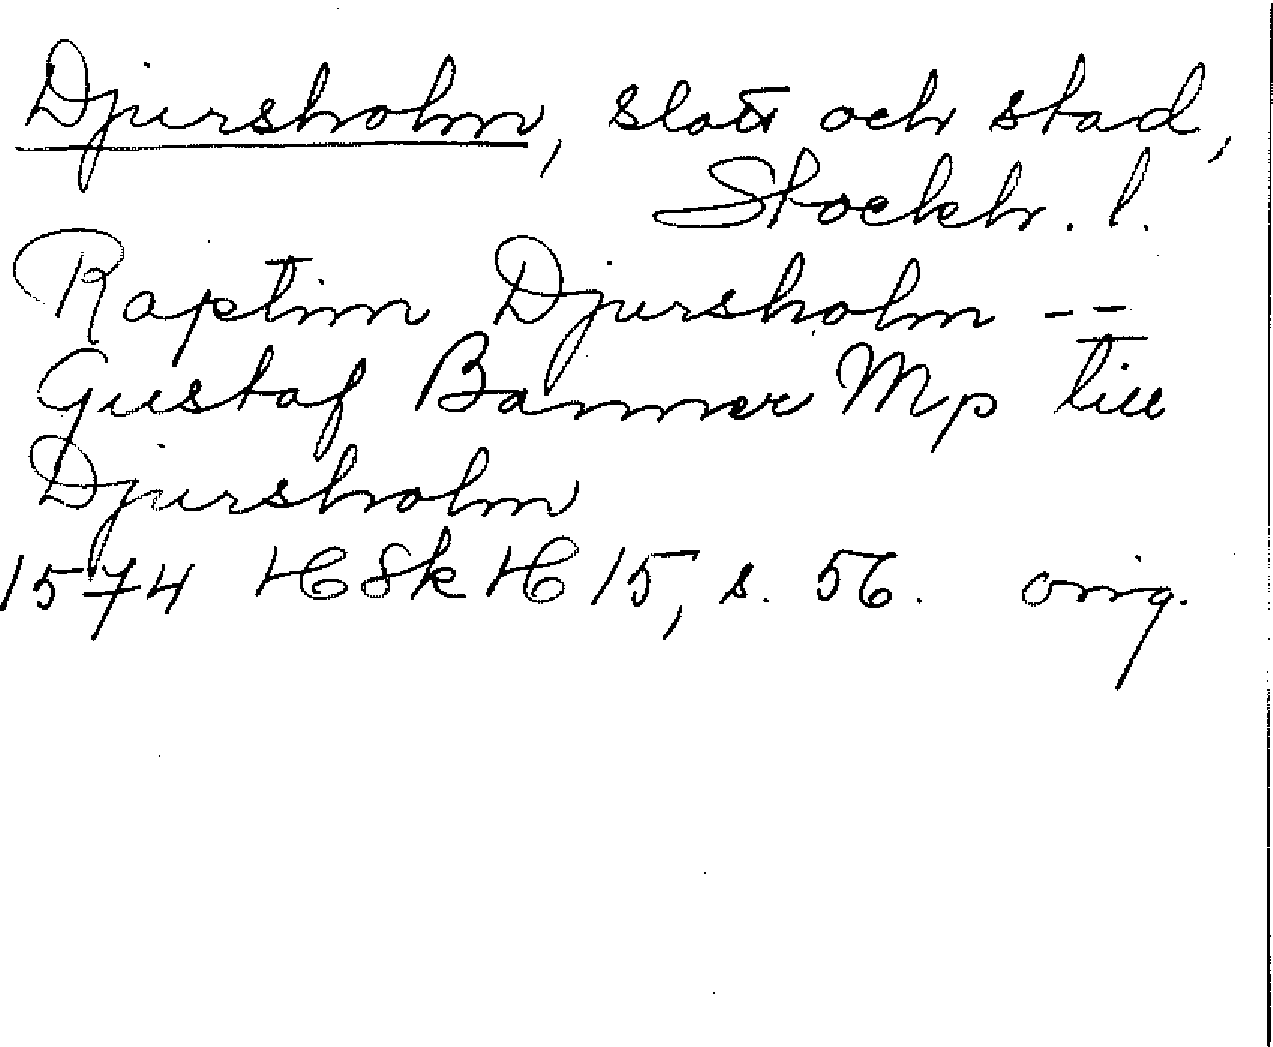 Djursholm, slott och stad,
Stockh. l.
Raptim Djursholm --
Gustaf Banner Mp till
Djursholm
1574 HSH 15, s. 56. orig.